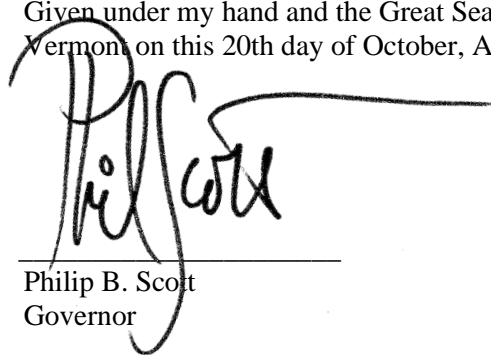 Given under my hand and the Great Sea
Vermont on this 20th day of October, A
Phil Scott
Philip B. Scott
Governor